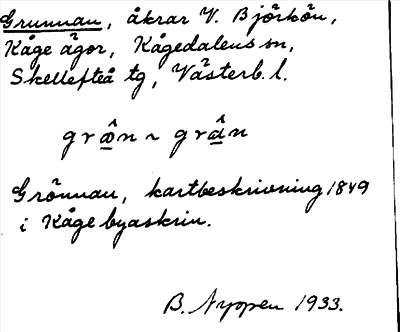 Grunnan, åkrar V. Björkön,
Kåge ägor, Kågedalens sn,
Skellefteå tg, Västerb. l.
grôn ~ grân
Grönnan, kartbeskrivning 1849
i Kåge byaskrin.
B. Nyppen 1933.